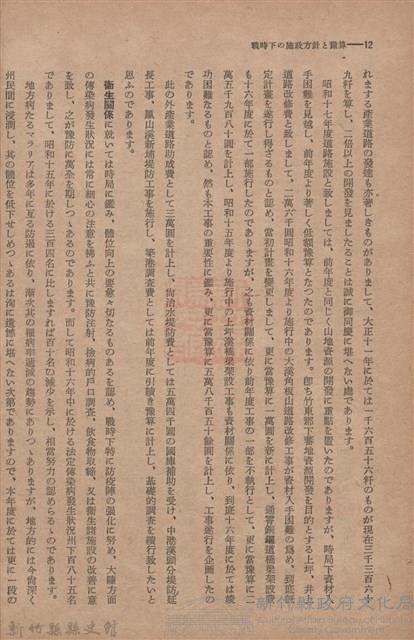 戰時下の施政方針と豫算——12
れまする產業道路の發達も亦著しきものがありまして、大正十一年に於ては一千六百五十六粁のものが現在三千三百六十
九粁を算し、二倍以上の開發を見ましたることは誠に御同慶に堪へない處であります。
昭和十七年度道路施設と致しましては、前年度と同じく山地資源の開發に重點を置いたのでありますが、時局下資材入
手困難を見越し、前年度より著しく低額豫算となつたのであります。卽ち竹東郡下蕃地資源開發を目的とする上坪、井上
道路改修費と致しまして、二萬六千圓昭和十六年度より施行中の大溪角板山道路改修工事が資材入手困難の爲め、到底豫
定計畫を遂行し得ざるものと認め、當初計畫を變更しまして、更に當豫算に一萬圓を新に計上し、通霄銅鑼道橋梁架設
も十六年度に於て一部施行したのでありますが、之も資材關係に依り前年度工事の一部を不執行として、更に當豫算に二
萬五千九百八十圓を計上し、昭和十五年度より施行中の上坪溪橋梁架設工事も資材關係に依り、到底十六年度に於ては竣
功困難なるものと認め、然も本工事の重要性に鑑み、更に當豫算に五萬八千百五十餘圓を計上し、工事遂行を企圖したの
であります。
此の外產業道路助成費として三萬圓を計上し、尙治水堤防費としては五萬四千圓の國庫補助を受け、中港溪頭分堤防延
長工事、鳳山溪新埔堤防工事を施行し、築港調查費としては前年度に引續き豫算に計上し、基礎的調查を續行致したいと
思ふのであります。
衞生關係に就いては時局に鑑み、體位向上の要愈々切なるものあるを認め、戰時下特に防疫陣の强化に努め、大陸方面
の傳染病發生狀況には常に細心の注意を拂ふと共に豫防注射、檢病的戶口調查、飮食物取締、又は衞生諸施設の改善に意
を致し、之が豫防に萬全を期しつゝあるのであります。而して昭和十六年中に於ける法定傳染病發生狀況州下百八十五名
でありまして、昭和十五年に於ける三百四名に比しますれば百十名の減少を示し、相當努力の認めらるゝのであります。
地方病たるマラリアは多年に亙る防遏に依り、漸次其の罹病率遞減の趨勢にありつゝありますが、地方的には今尙深く
州民間に浸潤し、其の體位を低下せしめつゝあるは洵に遺憾に堪へない次第でありますので、本年度に於ては更に一段の
新竹縣政府文化局
新竹縣縣史館